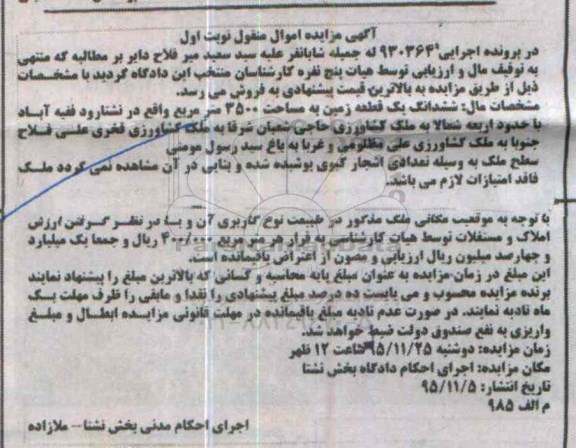 آگهی مزایده اموال منقول نوبت اول
در پرونده اجرایی ۹۳۰۳۶۴ له جمیله شابانفر علیه سید سعید میر فلاح دایر بر مطالبه که منتهی
به توقیف مال و ارزیابی توسط هیات پنج نفره کارشناسان منتخب این دادگاه گردید با مشخصات
ذیل از طریق مزایده به بالاترین قیمت پیشنهادی به فروش می رسد.
مشخصات مال: ششدانگ یک قطعه زمین به مساحت ۳۵۰۰ متر مربع واقع در نشتارود فقیه آباد
با حدود اربعه شمالا به ملک کشاورزی حاجی شعبان شرقا به ملک کشاورزی فخری ملسی فلاح
جنوبا به ملک کشاورزی علی مظلومی و غربا به باغ سید رسول مومنی
سطح ملک به وسیله تعدادی اشجار کیوی پوشیده شده و بنایی در آن مشاهده نمی گردد ملک
فاقد امتیازات لازم می باشد.
با توجه به موقعیت مکانی ملک مذکور در طبیعت نوع کاربری آن و با در نظر گرفتن ارزش
املاک و مستغلات توسط هیات کارشناسی به قرار هر متر مربع ۴۰۰/۰۰۰ ریال و جمعا یک میلیارد
و چهارصد میلیون ریال ارزیابی و مصون از اعتراض باقیمانده است.
این مبلغ در زمان مزایده به عنوان مبلغ پایه محاسبه و کسانی که بالاترین مبلغ را پیشنهاد نمایند
برنده مزایده محسوب و می بایست ده درصد مبلغ پیشنهادی را نقدا و مابقی را ظرف مهلت یک
ماه تادیه نمایند. در صورت عدم تادیه مبلغ باقیمانده در مهلت قانونی مزایده ابطال و مبلغ
واریزی به نفع صندوق دولت ضبط خواهد شد.
زمان مزایده: دوشنبه ۹۵/۱۱/۲۵ ساعت ۱۲ ظهر
مکان مزایده: اجرای احکام دادگاه بخش نشتا
تاریخ انتشار: ۹۵/۱۱/۵
م الف ۹۸۵
اجرای احکام مدنی بخش نشتا - ملازاده